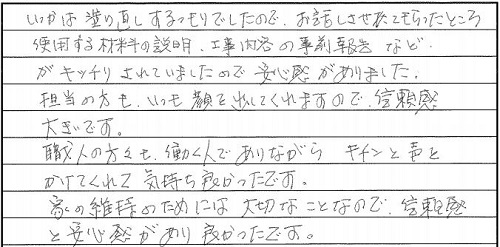 いつかは塗り直しするつもりでしたので、お話しさせてもらったところ
使用する材料の説明、工事内容の事前報告など
がキッチリされていましたので安心感がありました。
担当の方も、いつも顔を出してくれますので、信頼感
大きいです。
職人の方々も、働く人でありながら キチンと声を
かけてくれて気持ち良かったです。
家の維持のためには大切なことなので、信頼感
と安心感があり良かったです。